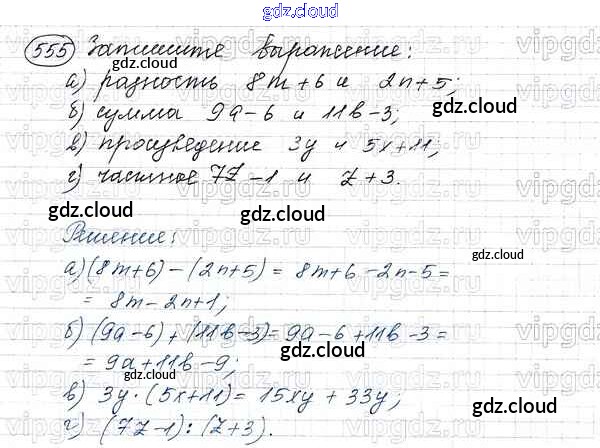 gdz.cloud
555 Запишите выражение:
а) разность 8m+6 и 2n+5;
б) сумма 9a-6 и 11b-3;
в) произведение 3y и 5x+11;
г) частное 7z-1 и z+3.
Решение:
а) (8m+6)-(2n+5) = 8m+6-2n-5=
= 8m-2n+1;
б) (9a-6)+(11b-3)=9a-6+11b-3=
= 9a+11b-9;
в) 3y·(5x+11)= 15xy+33y;
г) (7z-1):(z+3).
gdz.cloud
gdz.cloud
gdz.cloud
gdz.cloud
gdz.cloud
gdz.cloud
gdz.cloud
gdz.cloud
gdz.cloud